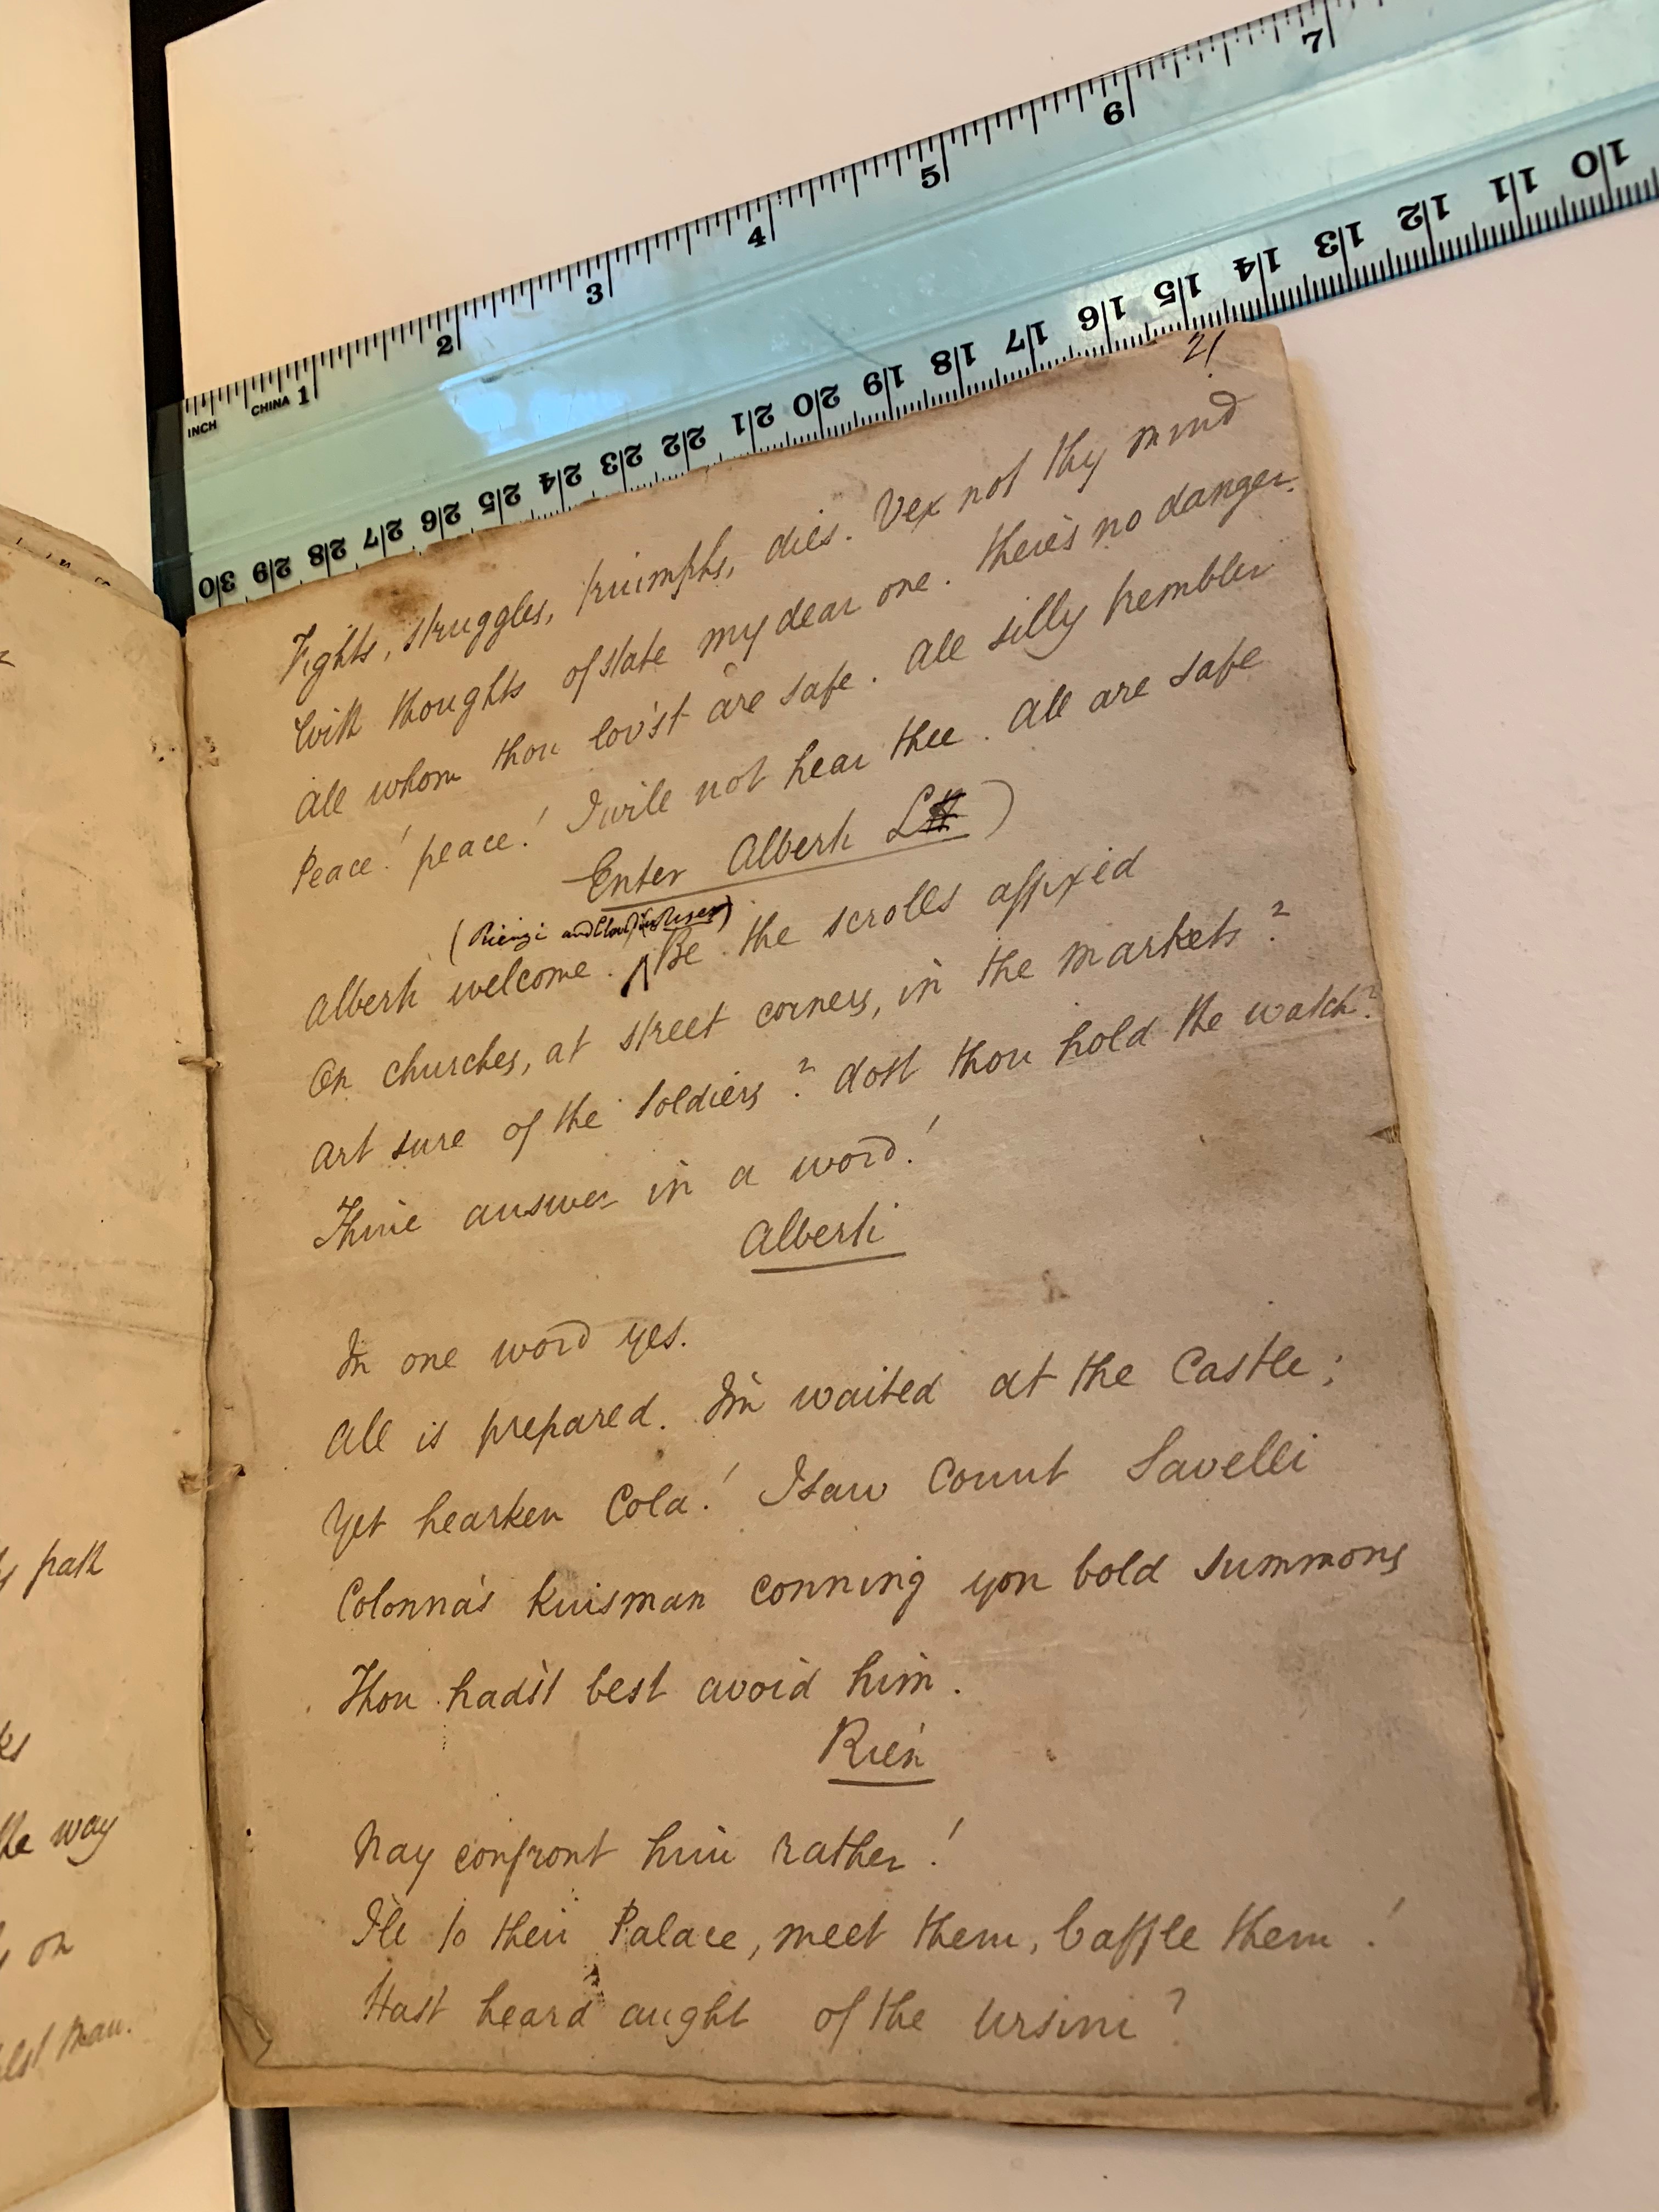 INCH CHINA 1 2 3 4 5 6 7
30 29 28 27 26 25 24 23 22 21 20 19 18 17 16 15 14 13 12 11 10
21
Fights, struggles, triumphs, dies. Vex not thy mind
With thoughts of state my dear one. there's no danger.
All whom thou lov'st are safe. All silly trembler
Peace! peace! I will not hear thee. All are safe
Enter Alberti L
(Rienzi and
Alberti welcome. Be the scrolls affixed
On churches, at street corners, in the markets?
Art sure of the soldiers? dost thou hold the watch?
Thine answer in a word!
Alberti
In one word yes.
All is prepared. I'm waited at the Castle;
Yet hearken Cola! I saw Count Savelli
Colonna's kinsman conning yon bold summons
Thou hads't best avoid him.
Rien
Nay confront him rather!
I'll to their Palace, meet them, baffle them!
Hast heard aught of the Ursini?
path
the way
on
man.